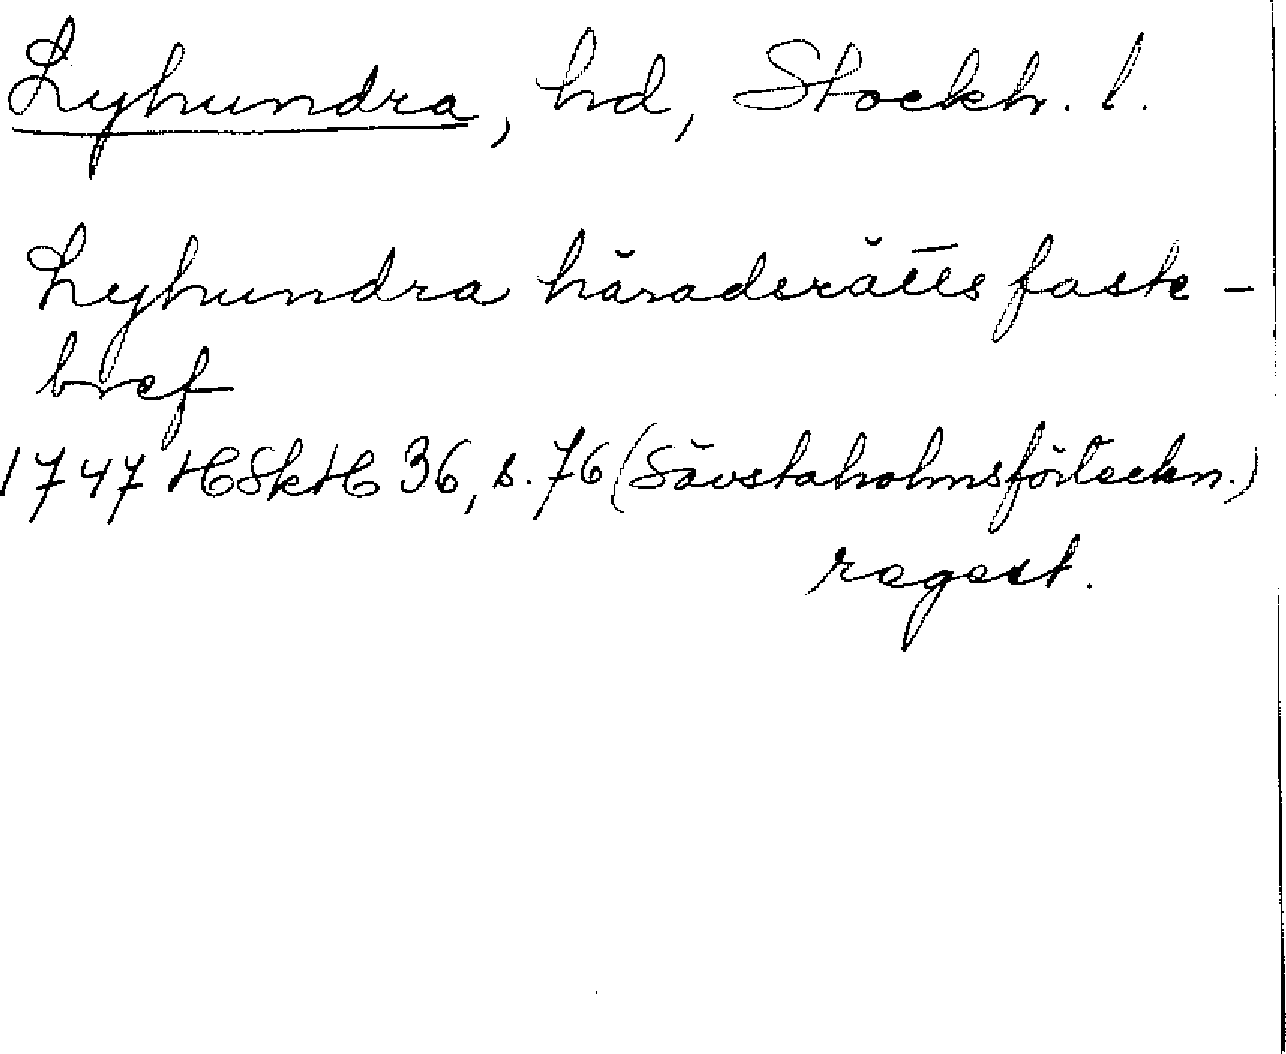 Lyhundra, hd, Stockh. l.
Lyhundra häradsrätts faste-
bref
1747 HSkH 36, s. 76 (Sävstaholmsförteckn.)
regest.